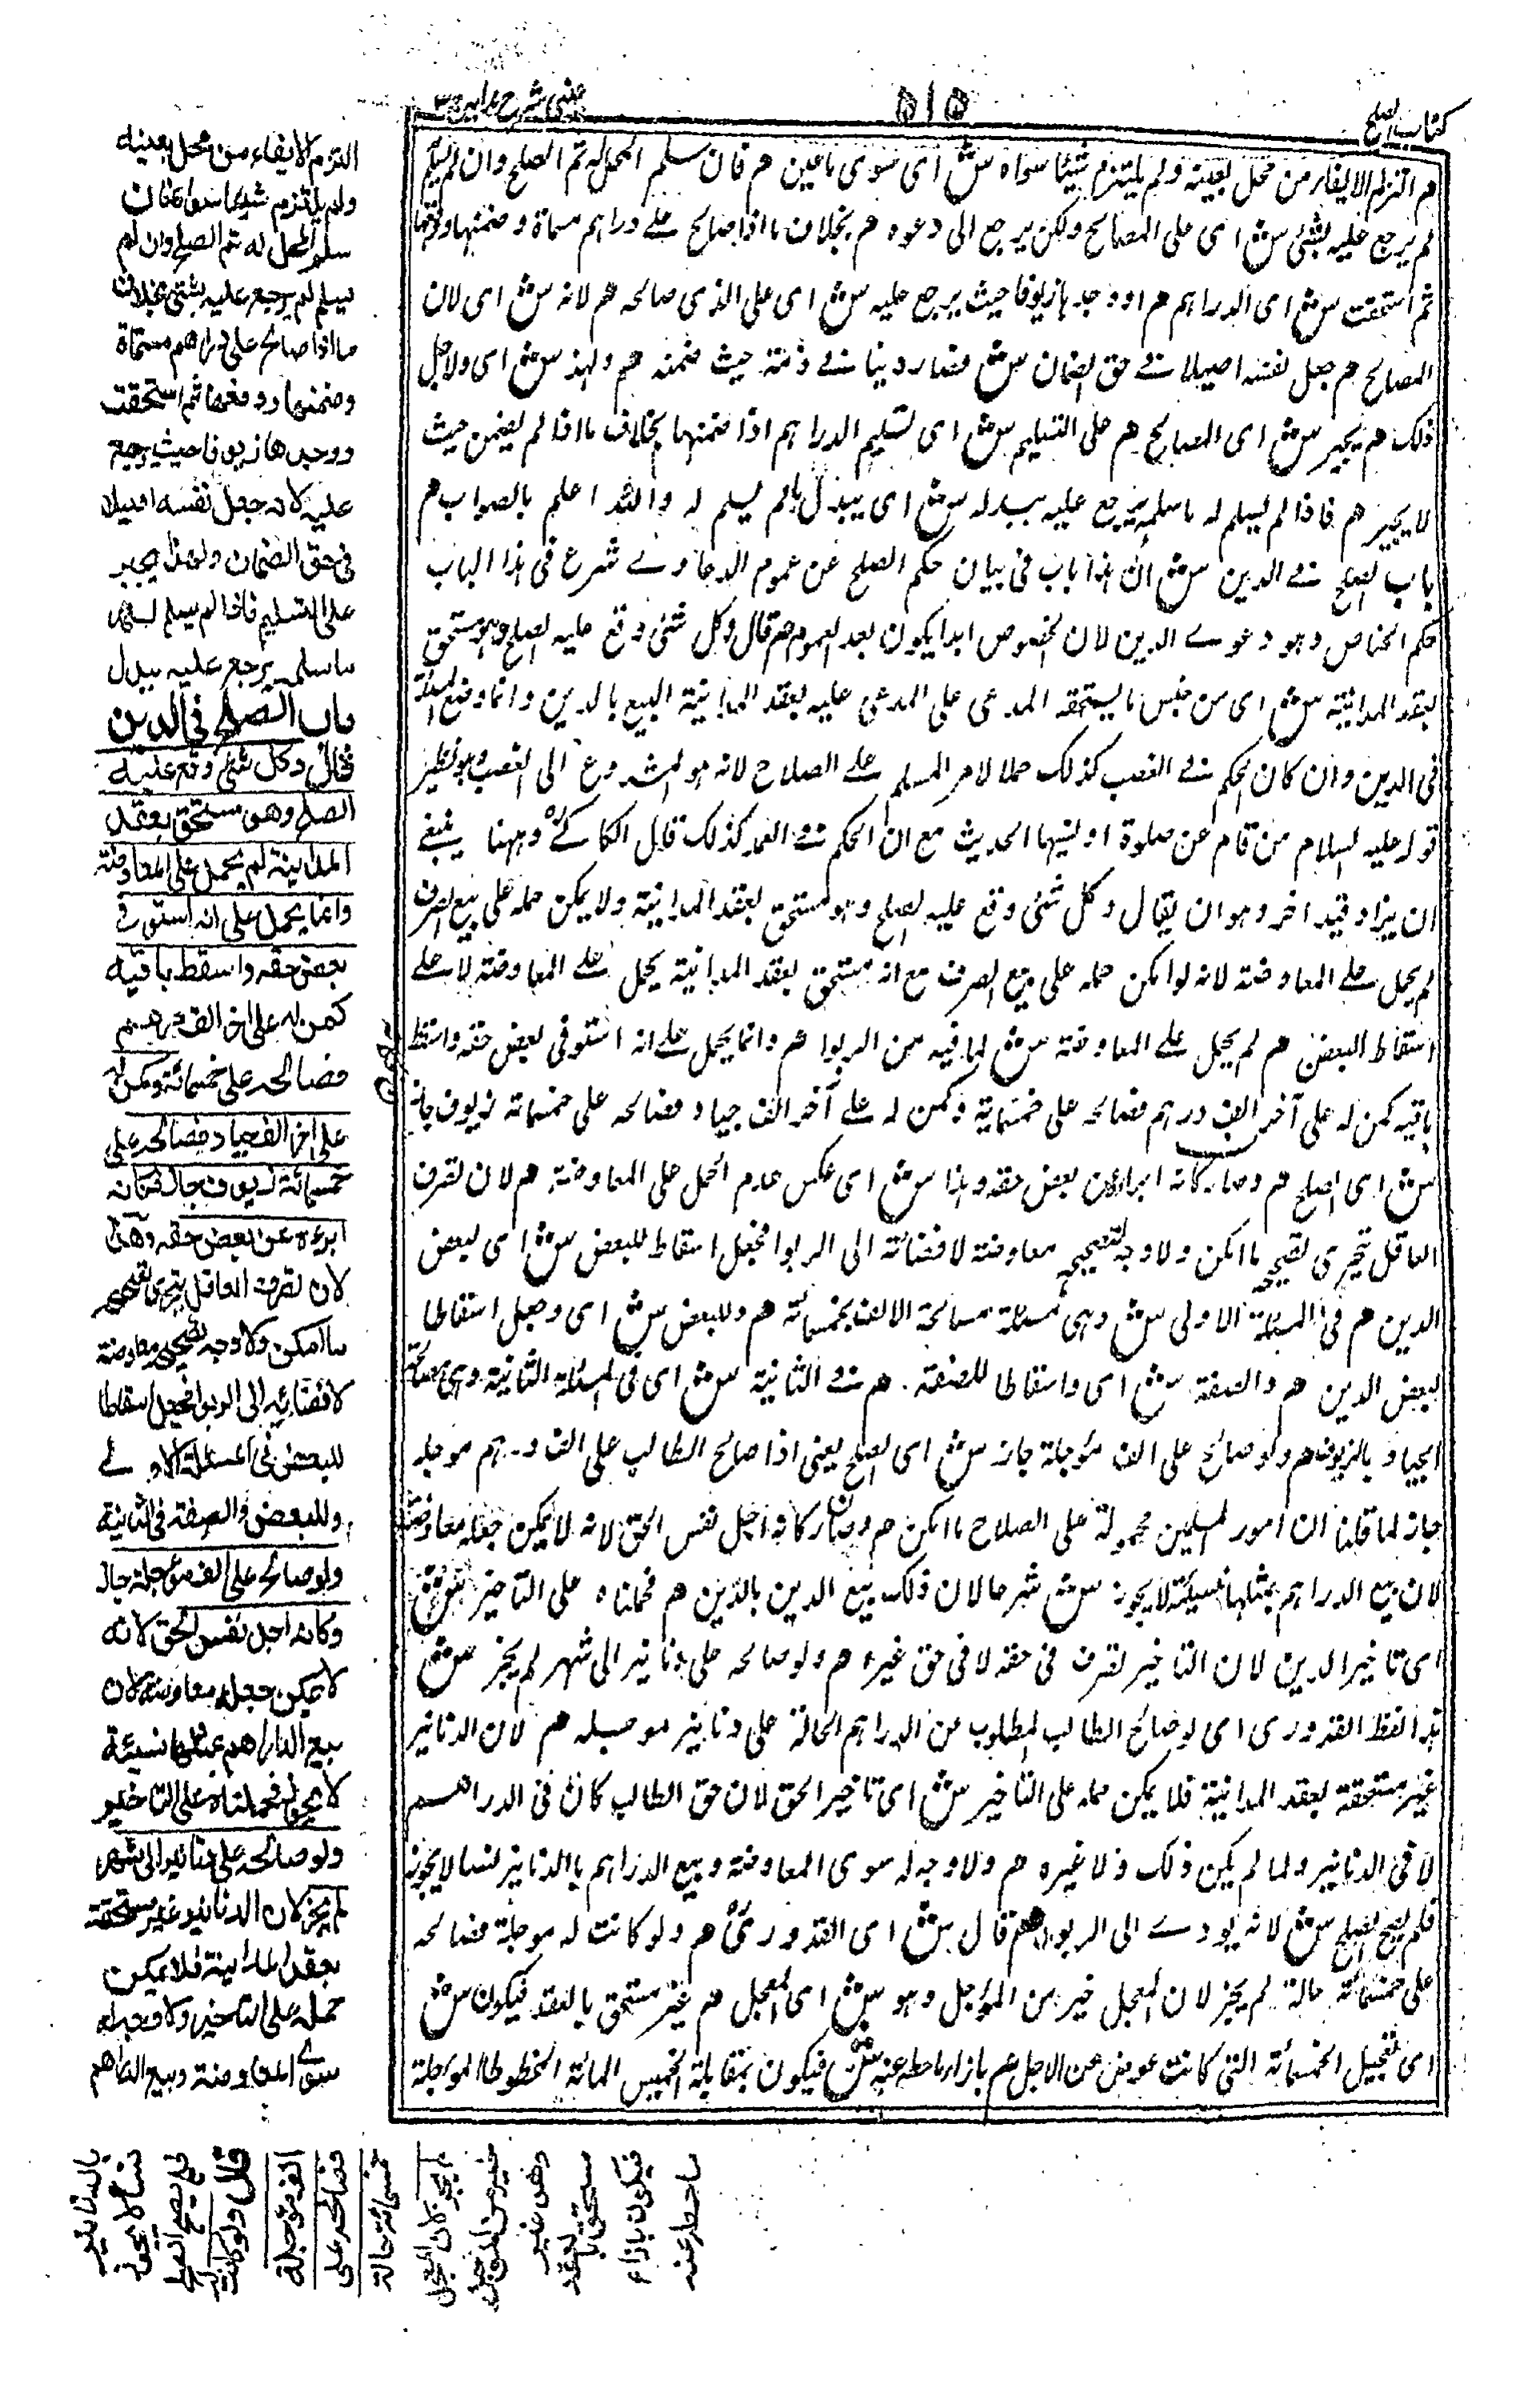 كتاب الصلح
٥١٥
عينى شرح هدايه ج٣
هم التزم الايفاء من محل بعينه ولم يلتزم شيئا سواه ش اى سوى ما عين هم فان سلم المحل له تم الصلح وان لم يسلم
لم يرجع عليه بشئى ش اى على المصالح ولكن يرجع الى دعوه هم بخلاف ما اذا صالح على دراهم مسماة وضمنها ودفعها
ثم استحقت ش اى الدراهم هم او وجدها زيوفا حيث يرجع عليه ش اى على الذى صالحه هم لانه ش اى لان
المصالح هم جعل نفسه اصيلا فى حق الضمان ش فصار دينا فى ذمته حيث ضمنه هم ولهذا ش اى ولاجل
ذلك هم يجبر ش اى المصالح هم على التسليم ش اى تسليم الدراهم اذا ضمنها بخلاف ما اذا لم يضمن حيث
لا يجبر هم فاذا لم يسلم له ما سلمه يرجع عليه ببدله ش اى يبدل ما لم يسلم له والله اعلم بالصواب هم
باب الصلح فى الدين ش ان هذا باب فى بيان حكم الصلح عن عموم الدعاوى شرع فى هذا الباب
حكم الخاص وهو دعوى الدين لان الخصوص ابدا يكون بعد العموم هم قال وكل شئى وقع عليه الصلح وهو مستحق
بعقد المداينة ش اى من جنس ما يستحقه المدعى على المدعى عليه بعقد المداينة البيع بالدين وانما وضع المسئلة
فى الدين وان كان الحكم فى الغصب كذلك حملا لامر المسلم على الصلاح لانه هو المشروع الى الغصب وهو نظير
قوله عليه السلام من قام عن صلوة او نسيها الحديث مع ان الحكم فى العمد كذلك قال الكاكى وههنا ينبغى
ان يزاد قيد اخر وهو ان يقال وكل شئى وقع عليه الصلح وهو مستحق بعقد المداينة ولا يمكن حمله على بيع الصرف
لم يحمل على المعاوضة لانه لو امكن حمله على بيع الصرف مع انه مستحق بعقد المداينة يحمل على المعاوضة لا على
اسقاط البعض هم لم يحمل على المعاوضة ش لما فيه من الربوا هم وانما يحمل على انه استوفى بعض حقه واسقط
باقيه كمن له على آخر الف درهم فصالحه على خمسمائة وكمن له على آخر الف جياد فصالحه على خمسمائة زيوف جاز
ش اى الصلح هم وصار كانه ابراه عن بعض حقه وهذا ش اى عكس عدم الحمل على المعاوضة هم لان تصرف
العاقل يتحرى تصحيحه ما امكن ولا وجه لتصحيحه معاوضة لافضائه الى الربوا فجعل اسقاطا للبعض ش اى لبعض
الدين هم فى المسئلة الاولى ش وهى مسئلة مصالحة الالف بخمسمائة هم وللبعض ش اى وجعل اسقاطا
لبعض الدين هم والصفة ش اى واسقاطا للصفة هم فى الثانية ش اى فى المسئلة الثانية وهى مصالحة
الجياد بالزيوف هم ولو صالح على الف مؤجلة جاز ش اى الصلح يعنى اذا صالح الطالب على الف درهم موجلة
جاز لما قلنا ان امور المسلمين محمولة على الصلاح ما امكن هم وصار كانه اجل نفس الحق لانه لا يمكن جعله معاوضة
لان بيع الدراهم بمثلها نسيئة لا يجوز ش شرعا لان ذلك بيع الدين بالدين هم فحملناه على التاخير ش
اى تاخير الدين لان التاخير تصرف فى حقه لا فى حق غيره هم ولو صالحه على دنانير الى شهر لم يجز ش
هذا لفظ القدورى اى لو صالح الطالب المطلوب من الدراهم الحالة على دنانير موجله هم لان الدنانير
غير مستحقة بعقد المداينة فلا يمكن حمله على التاخير ش اى تاخير الحق لان حق الطالب كان فى الدراهم
لا فى الدنانير ولما لم يكن ذلك ولا غيره هم ولا وجه له سوى المعاوضة وبيع الدراهم بالدنانير نسا لا يجوز
فلم يصح الصلح ش لانه يودى الى الربوا هم قال ش اى القدورى هم ولو كانت له موجلة فصالحه
على خمسمائة حالة لم يجز لان المعجل خير من المؤجل وهو ش اى المعجل هم غير مستحق بالعقد فيكون ش
اى تعجيل الخمسمائة التى كانت عوض عن الاجل هم بازاء ما حطه عنه ش فيكون بمقابلة الخمس المائة المحطوطة الموجلة
التزم الايفاء من محل بعينه
ولم يلتزم شيئا سواه فان
سلم المحل له تم الصلح وان لم
يسلم لم يرجع عليه بشئى بخلاف
ما اذا صالح على دراهم مسماة
وضمنها ودفعها ثم استحقت
ووجدها زيوفا حيث يرجع
عليه لانه جعل نفسه اصيلا
فى حق الضمان ولهذا يجبر
على التسليم فاذا لم يسلم له
ما سلمه يرجع عليه ببدل
باب الصلح فى الدين
قال وكل شئى وقع عليه
الصلح وهو مستحق بعقد
المداينة لم يحمل على المعاوضة
وانما يحمل على انه استوفى
بعض حقه واسقط باقيه
كمن له على اخر الف درهم
فصالحه على خمسمائة وكمن له
على اخر الف جياد فصالحه على
خمسمائة زيوف جاز فكانه
ابرءه عن بعض حقه وهذا
لان تصرف العاقل يتحرى تصحيحه
ما امكن ولا وجه لتصحيحه معاوضة
لافضائه الى الربوا فجعل اسقاطا
للبعض فى المسئلة الاولى
وللبعض والصفة فى الثانية
ولو صالح على الف مؤجلة جاز
وكانه اجل نفس الحق لانه
لا يمكن جعله معاوضة لان
بيع الدراهم بمثلها نسيئة
لا يجوز فحملناه على التاخير
ولو صالحه على دنانير الى شهر
لم يجز لان الدنانير غير مستحقة
بعقد المداينة فلا يمكن
حمله على التاخير ولا وجه له
سوى المعاوضة وبيع الدراهم
بالدنانير
نسا لا يجوز
فلم يصح الصلح
قال ولو كانت له
الف مؤجلة
فصالحه على
خمسمائة حالة
لم يجز لان المعجل
خير من المؤجل
وهو غير
مستحق بالعقد
فيكون بازاء
ما حطه عنه